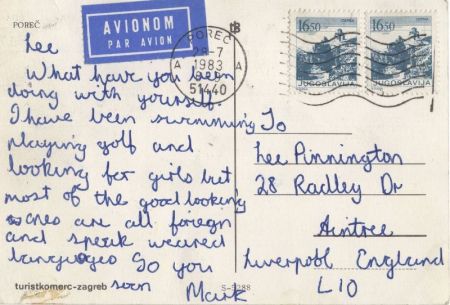 POREČ
AVIONOM
PAR AVION
POREČ
A A
28-7
1983
8-9
51440
16,50
JUGOSLAVIJA
16,50
JUGOSLAVIJA
Lee
What have you been
doing with yourself.
I have been swimming
playing golf and
looking for girls but
most of the good looking
ones are all foreign
and speak weared
languages So you
soon Mark
To
Lee Pinnington
28 Radley Dr
Aintree
Liverpool England
L10
turistkomerc-zagreb